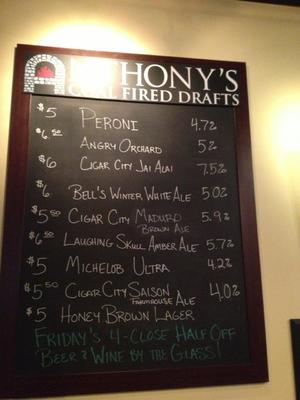 ANTHONY'S
COAL FIRED DRAFTS
$5 PERONI 4.7%
$6.50 ANGRY ORCHARD 5%
$6 CIGAR CITY JAI ALAI 7.5%
$6 BELL'S WINTER WHITE ALE 5.0%
$5.50 CIGAR CITY MADURO 5.9%
BROWN ALE
$6.50 LAUGHING SKULL AMBER ALE 5.7%
$5 MICHELOB ULTRA 4.2%
$5.50 CIGAR CITY SAISON 4.0%
FARMHOUSE ALE
$5 HONEY BROWN LAGER
FRIDAY'S 4-CLOSE HALF OFF
BEER & WINE BY THE GLASS!